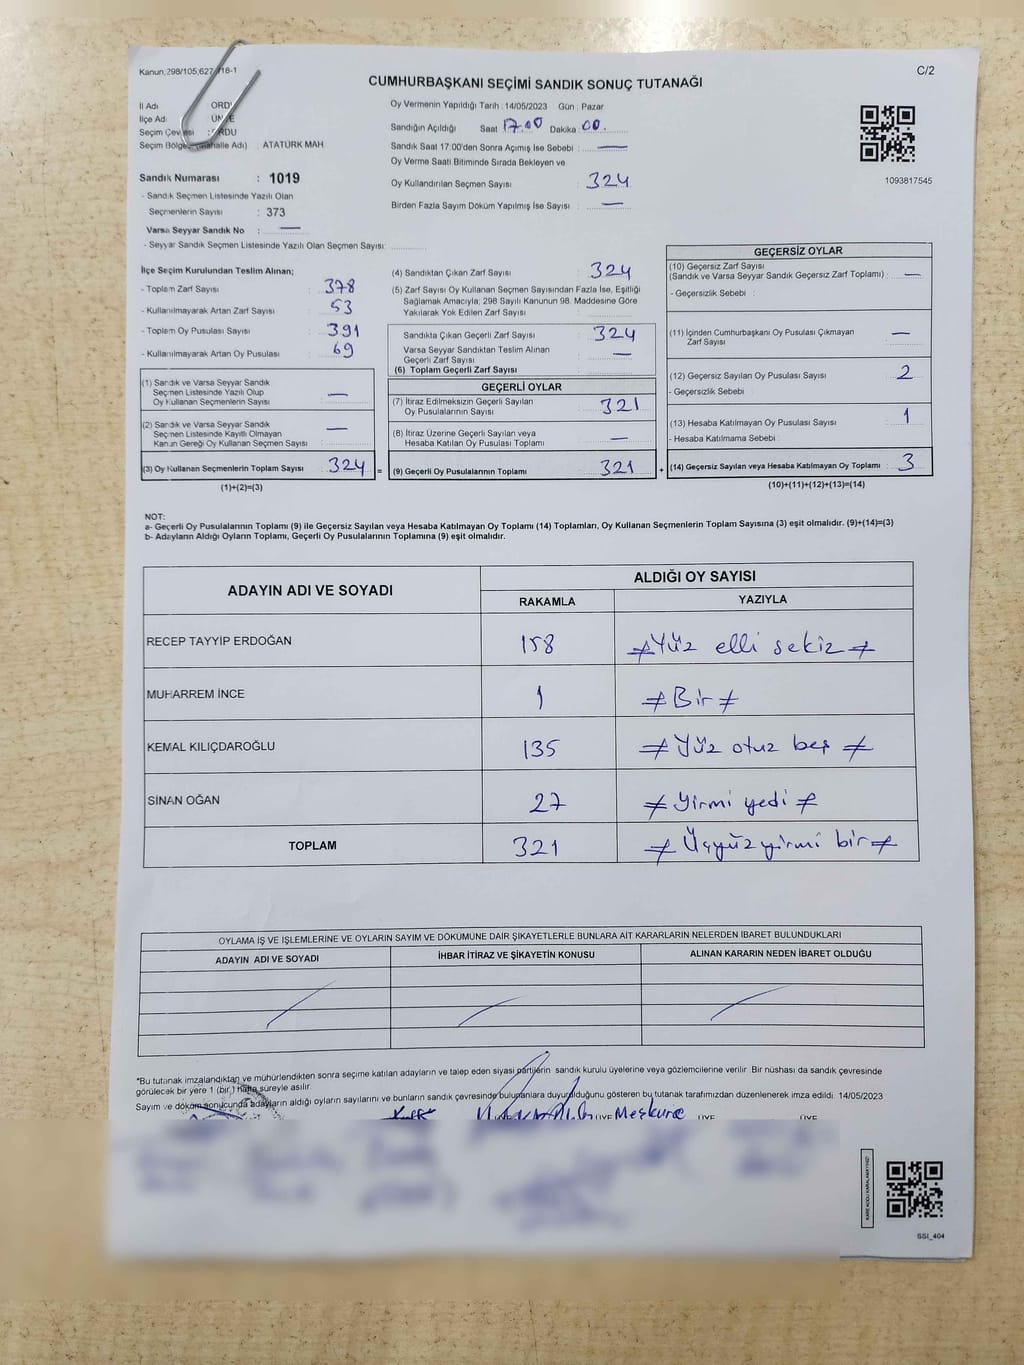 Kanun,298/105,627 /18-1
C/2
CUMHURBAŞKANI SEÇİMİ SANDIK SONUÇ TUTANAĞI
İl Adı : ORDU
İlçe Adı : ÜNYE
Seçim Çevresi : ORDU
Seçim Bölgesi (Mahalle Adı) ATATÜRK MAH
Sandık Numarası : 1019
- Sandık Seçmen Listesinde Yazılı Olan
Seçmenlerin Sayısı : 373
Varsa Seyyar Sandık No : —
- Seyyar Sandık Seçmen Listesinde Yazılı Olan Seçmen Sayısı:
Oy Vermenin Yapıldığı Tarih : 14/05/2023 Gün : Pazar
Sandığın Açıldığı Saat 17.00 Dakika 00.
Sandık Saat 17:00'den Sonra Açımış İse Sebebi : —
Oy Verme Saati Bitiminde Sırada Bekleyen ve
Oy Kullandırılan Seçmen Sayısı : 324
Birden Fazla Sayım Döküm Yapılmış İse Sayısı : —
1093817545
İlçe Seçim Kurulundan Teslim Alınan;
- Toplam Zarf Sayısı : 378
- Kullanılmayarak Artan Zarf Sayısı : 53
- Toplam Oy Pusulası Sayısı : 391
- Kullanılmayarak Artan Oy Pusulası : 69
(1) Sandık ve Varsa Seyyar Sandık
Seçmen Listesinde Yazılı Olup
Oy Kullanan Seçmenlerin Sayısı —
(2) Sandık ve Varsa Seyyar Sandık
Seçmen Listesinde Kayıtlı Olmayan
Kanun Gereği Oy Kullanan Seçmen Sayısı : —
(3) Oy Kullanan Seçmenlerin Toplam Sayısı : 324 =
(1)+(2)=(3)
(4) Sandıktan Çıkan Zarf Sayısı : 324
(5) Zarf Sayısı Oy Kullanan Seçmen Sayısından Fazla İse, Eşitliği
Sağlamak Amacıyla; 298 Sayılı Kanunun 98. Maddesine Göre
Yakılarak Yok Edilen Zarf Sayısı :
Sandıkta Çıkan Geçerli Zarf Sayısı : 324
Varsa Seyyar Sandıktan Teslim Alınan
Geçerli Zarf Sayısı : —
(6) Toplam Geçerli Zarf Sayısı :
GEÇERLİ OYLAR
(7) İtiraz Edilmeksizin Geçerli Sayılan
Oy Pusulalarının Sayısı : 321
(8) İtiraz Üzerine Geçerli Sayılan veya
Hesaba Katılan Oy Pusulası Toplamı : —
(9) Geçerli Oy Pusulalarının Toplamı : 321 +
GEÇERSİZ OYLAR
(10) Geçersiz Zarf Sayısı
(Sandık ve Varsa Seyyar Sandık Geçersiz Zarf Toplamı) : —
- Geçersizlik Sebebi :
(11) İçinden Cumhurbaşkanı Oy Pusulası Çıkmayan
Zarf Sayısı : —
(12) Geçersiz Sayılan Oy Pusulası Sayısı : 2
- Geçersizlik Sebebi :
(13) Hesaba Katılmayan Oy Pusulası Sayısı : 1
- Hesaba Katılmama Sebebi :
(14) Geçersiz Sayılan veya Hesaba Katılmayan Oy Toplamı : 3
(10)+(11)+(12)+(13)=(14)
NOT:
a- Geçerli Oy Pusulalarının Toplamı (9) ile Geçersiz Sayılan veya Hesaba Katılmayan Oy Toplamı (14) Toplamları, Oy Kullanan Seçmenlerin Toplam Sayısına (3) eşit olmalıdır. (9)+(14)=(3)
b- Adayların Aldığı Oyların Toplamı, Geçerli Oy Pusulalarının Toplamına (9) eşit olmalıdır.
ADAYIN ADI VE SOYADI
ALDIĞI OY SAYISI
RAKAMLA YAZIYLA
RECEP TAYYİP ERDOĞAN 158 ≠Yüz elli sekiz≠
MUHARREM İNCE 1 ≠Bir≠
KEMAL KILIÇDAROĞLU 135 ≠Yüz otuz beş≠
SİNAN OĞAN 27 ≠yirmi yedi≠
TOPLAM 321 ≠Üçyüzyirmi bir≠
OYLAMA İŞ VE İŞLEMLERİNE VE OYLARIN SAYIM VE DÖKÜMÜNE DAİR ŞİKAYETLERLE BUNLARA AİT KARARLARIN NELERDEN İBARET BULUNDUKLARI
ADAYIN ADI VE SOYADI İHBAR İTİRAZ VE ŞİKAYETİN KONUSU ALINAN KARARIN NEDEN İBARET OLDUĞU
*Bu tutanak imzalandıktan ve mühürlendikten sonra seçime katılan adayların ve talep eden siyasi partilerin sandık kurulu üyelerine veya gözlemcilerine verilir. Bir nüshası da sandık çevresinde
görülecek bir yere 1 (bir) hafta süreyle asılır.
Sayım ve döküm sonucunda adayların aldığı oyların sayılarını ve bunların sandık çevresinde bulunanlara duyurulduğunu gösteren bu tutanak tarafımızdan düzenlenerek imza edildi. 14/05/2023
ÜYE Meşkure ÜYE ÜYE
SSI_404